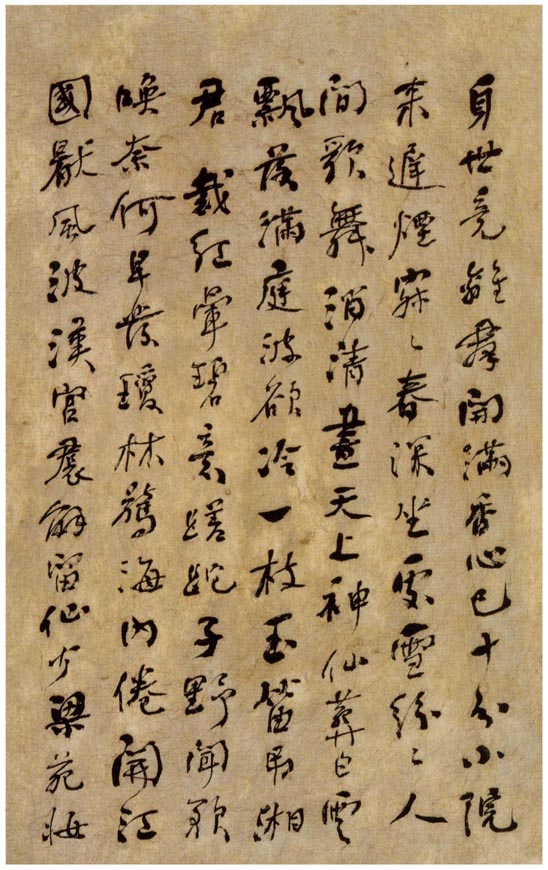 身世竟離群開滿香心已十分小院
来遲煙寂〻春深坐處雪紛〻人
間歌舞消清晝天上神仙葬白雲
飄落滿庭波欲冷一枝玉笛吊湘
君 裁紅暈碧意蹉跎子野聞歌
喚奈何早發瓊林驚海内倦開江
國厭風波漢宮裙解留仙少梁苑妝